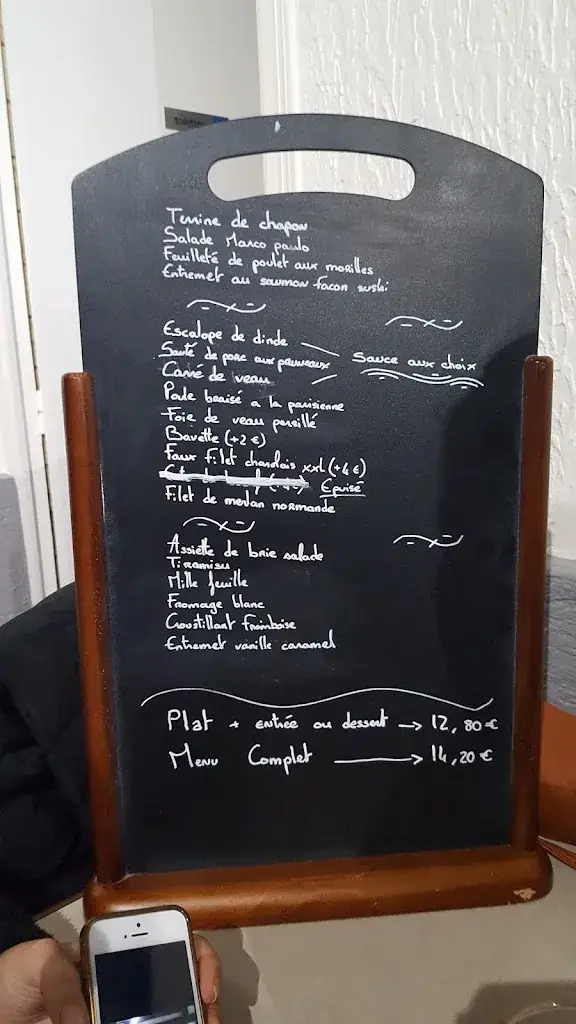 Terrine de chapon
Salade Marco paulo
Feuilleté de poulet aux morilles
Entremet au saumon facon sushi
Escalope de dinde
Sauté de porc aux pruneaux
Sauce aux choix
Carré de veau
Poule braisé a la parisienne
Foie de veau persillé
Bavette (+2 €)
Faux filet charolais xxl (+4 €)
Epuisé
Filet de merlan normande
Assiette de brie salade
Tiramisu
Mille feuille
Fromage blanc
Croustillant framboise
Entremet vanille caramel
Plat + entrée ou dessert → 12,80 €
Menu Complet → 14,20 €